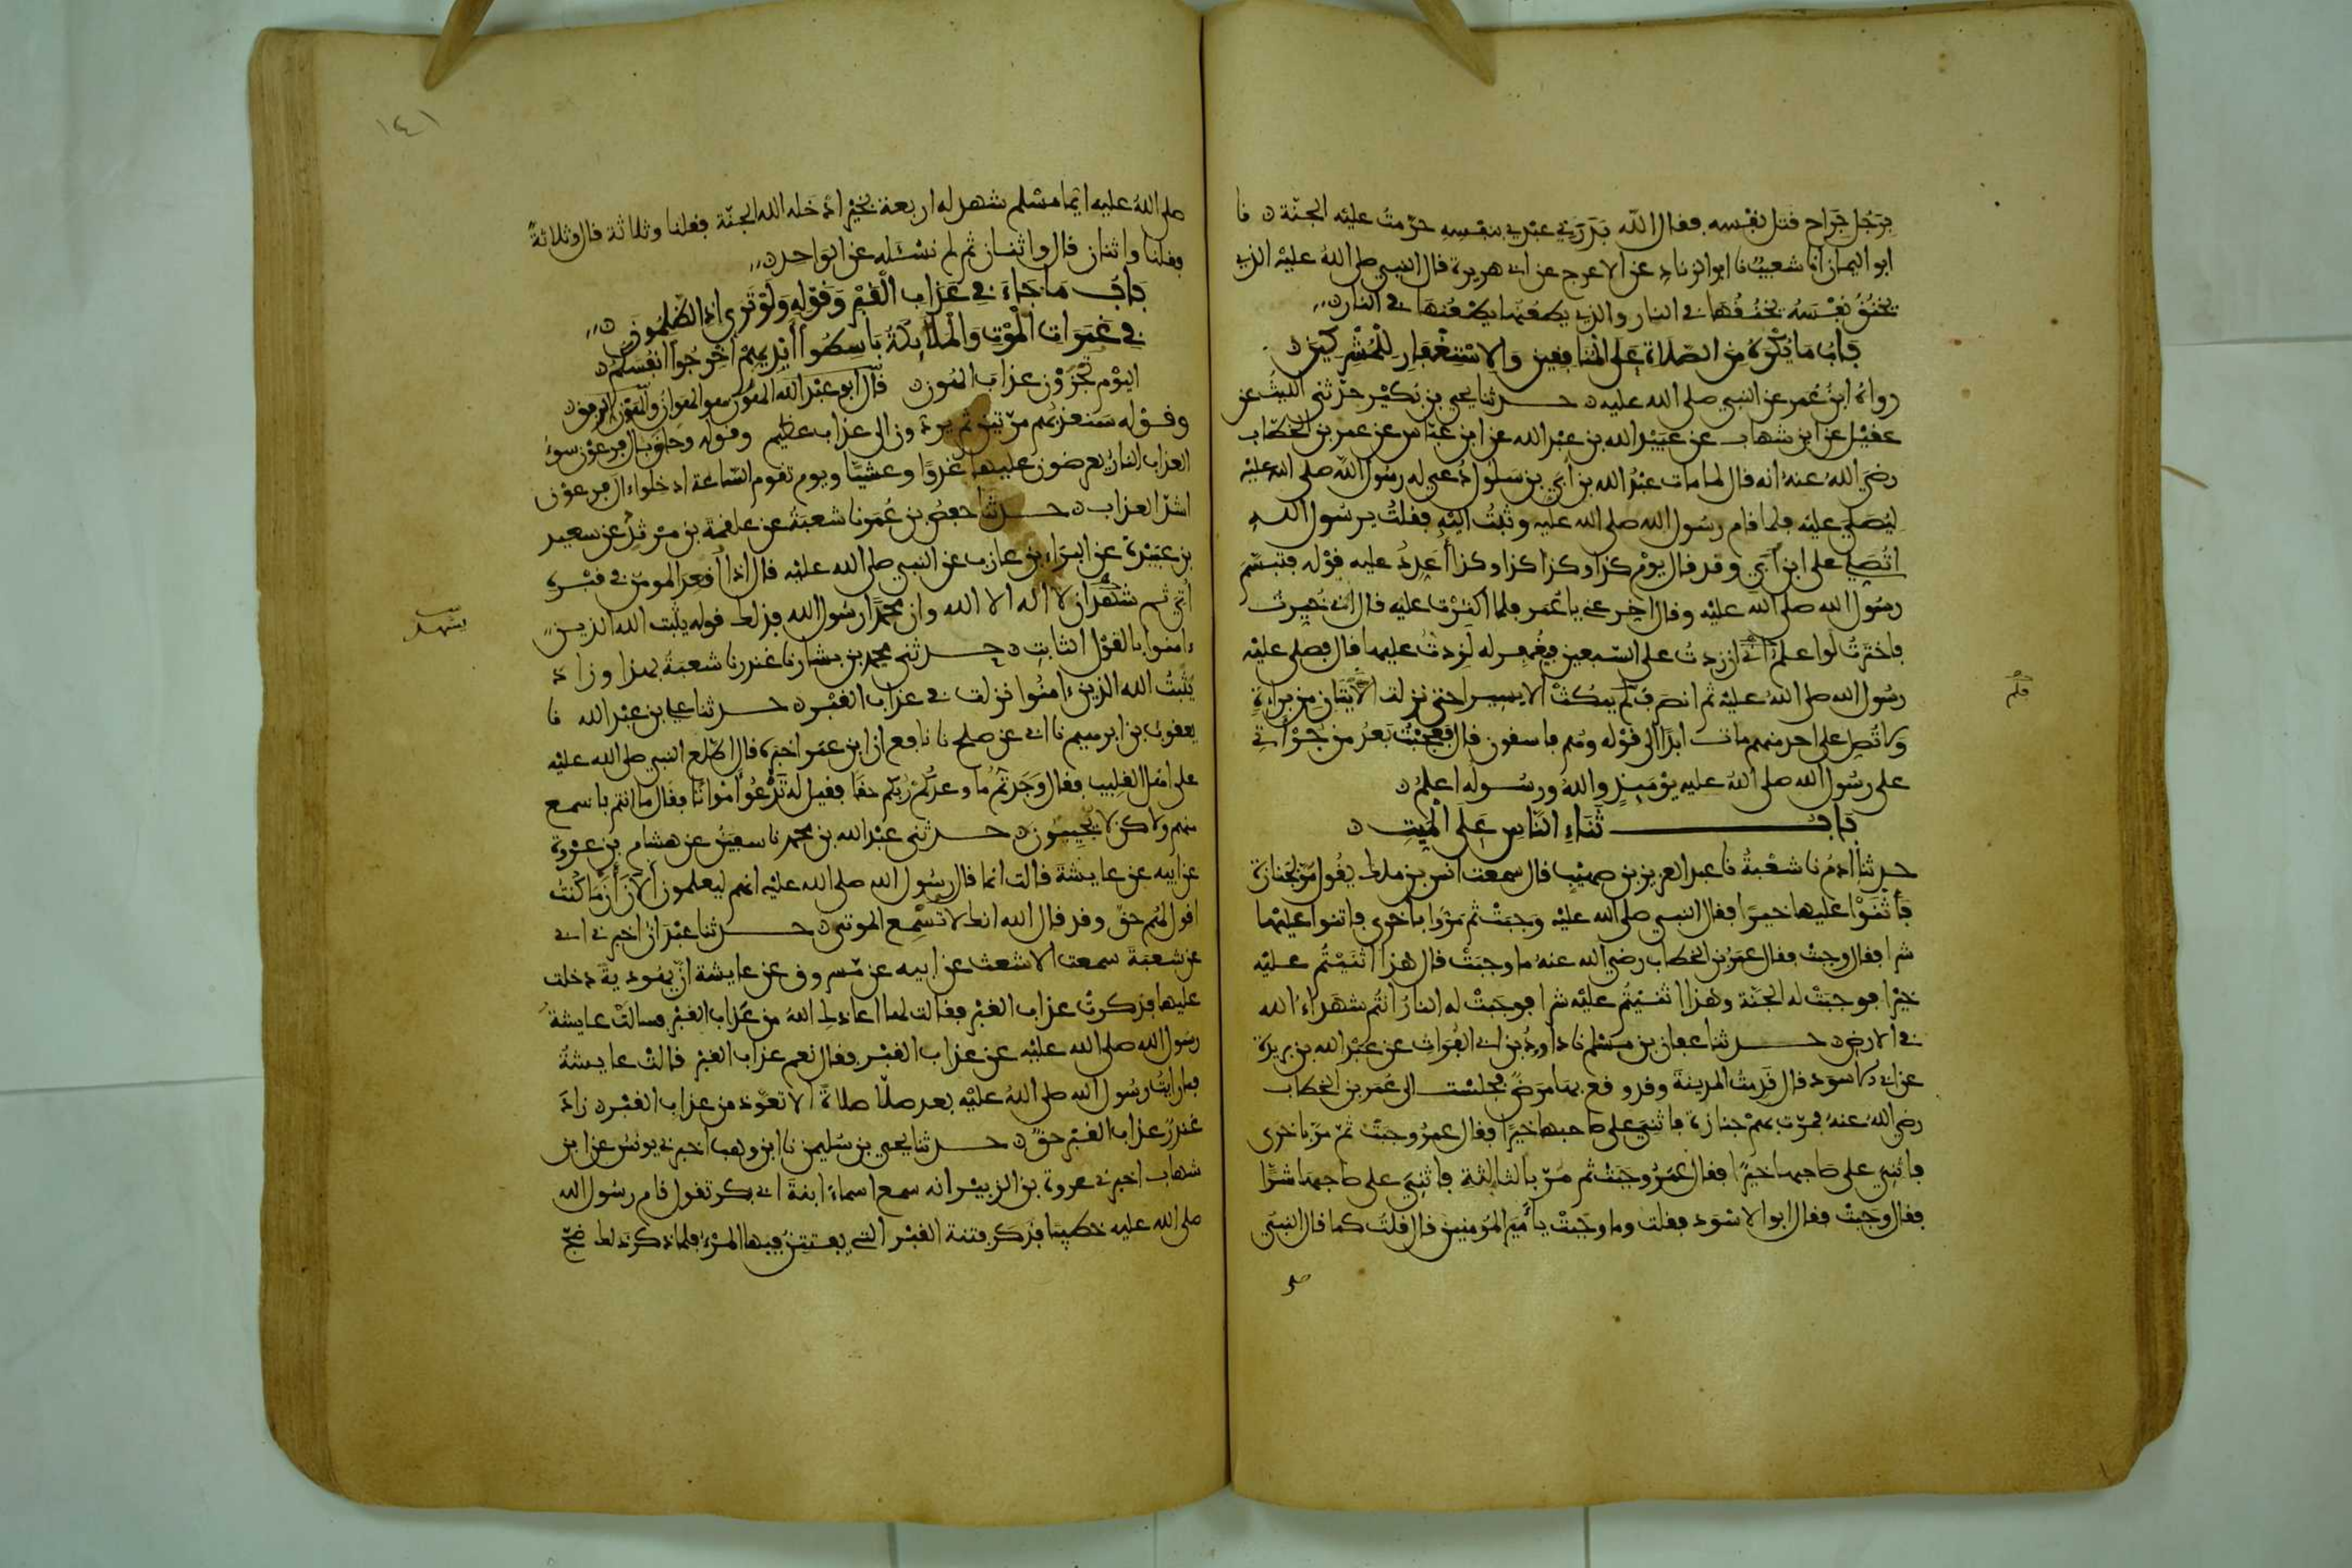 برجل جراح قتل نفسه فقال الله بدرني عبدي بنفسه حرمت عليه الجنة نا
ابو اليمان انا شعيب نا ابو الزناد عن الاعرج عن ابي هريرة قال النبي صلى الله عليه الذي
يخنق نفسه يخنقها في النار والذي يطعنها يطعنها في النار
باب ما يكره من الصلاة على المنافقين والاستغفار للمشركين
رواه ابن عمر عن النبي صلى الله عليه حدثنا يحيى بن بكير حدثني الليث عن
عقيل عن ابن شهاب عن عبيد الله بن عبد الله عن ابن عباس عن عمر بن الخطاب
رضي الله عنه انه قال لما مات عبد الله بن أبي بن سلول دعي له رسول الله صلى الله عليه
ليصلي عليه فلما قام رسول الله صلى الله عليه وثبت اليه فقلت يرسول الله
اتصلي على ابن أبي وقد قال يوم كذا وكذا كذا وكذا أعدد عليه قوله فتبسم
رسول الله صلى الله عليه وقال اخر عني يا عمر فلما اكثرت عليه قال اني خيرت
فاخترت لو اعلم اني ان زدت على السبعين فيغفر له لزدت عليها قال فصلى عليه
رسول الله صلى الله عليه ثم انصرف فلم يمكث الا يسيرا حتى نزلت الايتان من براءة
ولا تصل على احد منهم مات ابدا الى قوله وهم فاسقون قال فعجبت بعد من جرأتي
على رسول الله صلى الله عليه يوميذ والله ورسوله اعلم
باب ثناء الناس على الميت
حدثنا ادم نا شعبة نا عبد العزيز بن صهيب قال سمعت انس بن ملك يقول مر بجنازة
فأثنوا عليها خيرا فقال النبي صلى الله عليه وجبت ثم مروا بأخرى فاثنوا عليها
شرا فقال وجبت فقال عمر بن الخطاب رضي الله عنه ما وجبت قال هذا اثنيتم عليه
خيرا فوجبت له الجنة وهذا اثنيتم عليه شرا فوجبت له النار انتم شهداء الله
في الارض حدثنا عفان بن مسلم نا داود بن ابي الفرات عن عبد الله بن بريدة
عن ابي الاسود قال قدمت المدينة وقد وقع بها مرض فجلست الى عمر بن الخطاب
رضي الله عنه فمرت بهم جنازة فاثني على صاحبها خيرا فقال عمر وجبت ثم مر باخرى
فاثني على صاحبها خيرا فقال عمر وجبت ثم مر بالثالثة فاثني على صاحبها شرا
فقال وجبت فقال ابو الاسود فقلت وما وجبت يا أمير المؤمنين قال قلت كما قال النبي
صلى
فلم
١٤١
صلى الله عليه ايما مسلم شهد له اربعة بخير ادخله الله الجنة فقلنا وثلاثة قال وثلاثة
فقلنا واثنان قال واثنان ثم لم نسئله عن الواحد
باب ما جاء في عذاب القبر وقوله ولو ترى اذ الظلمون
في غمرات الموت والملايكة باسطوا أيديهم أخرجوا أنفسكم
اليوم تجزون عذاب الهون قال ابو عبد الله الهون هو الهوان والهون الرفق
وقوله سنعذبهم مرتين ثم يردون الى عذاب عظيم وقوله وحاق بال فرعون سوء
العذاب النار يعرضون عليها غدوا وعشيا ويوم تقوم الساعة ادخلوا ءال فرعون
اشد العذاب حدثنا حفص بن عمر نا شعبة عن علقمة بن مرثد عن سعيد
بن عبيدة عن البراء بن عازب عن النبي صلى الله عليه قال اذا أقعد المومن في قبره
أتي ثم شهد ان لا اله الا الله وان محمدا رسول الله فذلك قوله يثبت الله الذين
ءامنوا بالقول الثابت حدثني محمد بن بشار نا غندر نا شعبة بهذا وزاد
يثبت الله الذين ءامنوا نزلت في عذاب القبر حدثنا علي بن عبد الله نا
يعقوب بن ابرهيم نا ابي عن صلح نا نافع ان ابن عمر اخبره قال اطلع النبي صلى الله عليه
على اهل القليب فقال وجدتم ما وعدكم ربكم حقا فقيل له تدعوا أمواتا فقال ما انتم باسمع
منهم ولاكن لا يجيبون حدثني عبد الله بن محمد نا سفين عن هشام بن عروة
عن ابيه عن عايشة قالت انما قال رسول الله صلى الله عليه انهم ليعلمون الان أن ما كنت
اقول لهم حق وقد قال الله انك لا تسمع الموتى حدثنا عبدان اخبرني ابي
عن شعبة سمعت الاشعث عن ابيه عن مسروق عن عايشة ان يهودية دخلت
عليها فذكرت عذاب القبر فقالت لها اعاذك الله من عذاب القبر فسالت عايشة
رسول الله صلى الله عليه عن عذاب القبر فقال نعم عذاب القبر قالت عايشة
فما رايت رسول الله صلى الله عليه بعد صلا صلاة الا تعوذ من عذاب القبر زاد
غندر عذاب القبر حق حدثنا يحيى بن سليمن نا ابن وهب اخبرني يونس عن ابن
شهاب اخبرني عروة بن الزبير انه سمع اسماء ابنة ابي بكر تقول قام رسول الله
صلى الله عليه خطيبا فذكر فتنة القبر التي يفتتن فيها المرء فلما ذكر ذلك ضج
يشهد